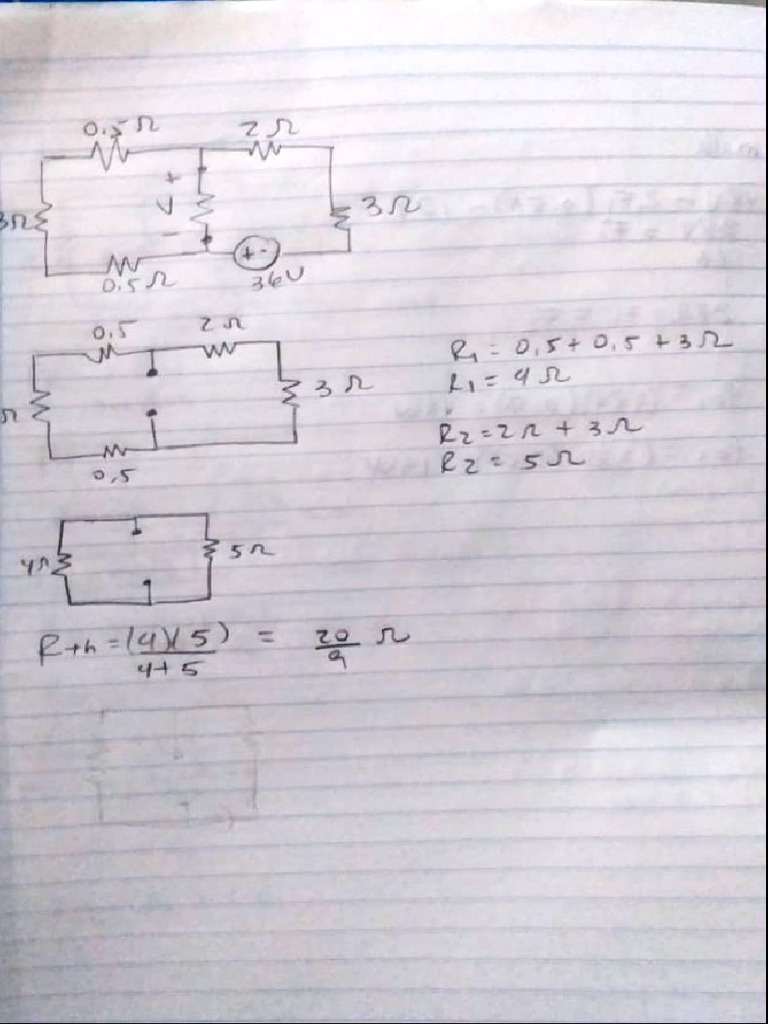 0.5Ω 2Ω
+
V
-
3Ω
3Ω
+ -
0.5Ω 36V
0.5 2Ω
Ω
3Ω
0,5
R1 = 0,5 + 0,5 + 3Ω
R1 = 4Ω
R2 = 2Ω + 3Ω
R2 = 5Ω
4Ω
5Ω
R+h = (4)(5) = 20 Ω
4+5 9